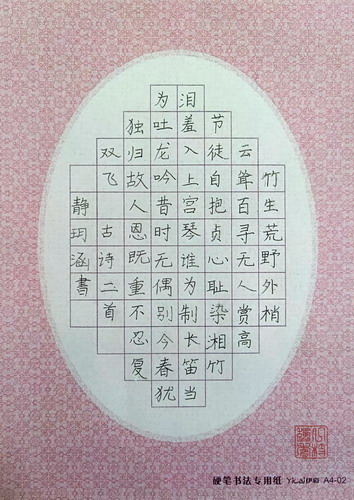 竹生荒野外梢
云耸百寻无人赏高
节徒自抱贞心耻染湘竹
泪羞入上宫琴谁为制长笛当
为吐龙吟昔时无偶别今春犹
独归故人恩既重不忍复
双飞 古诗二首
静玥涵書
硬笔书法专用纸 Yicai伊彩 A4-02